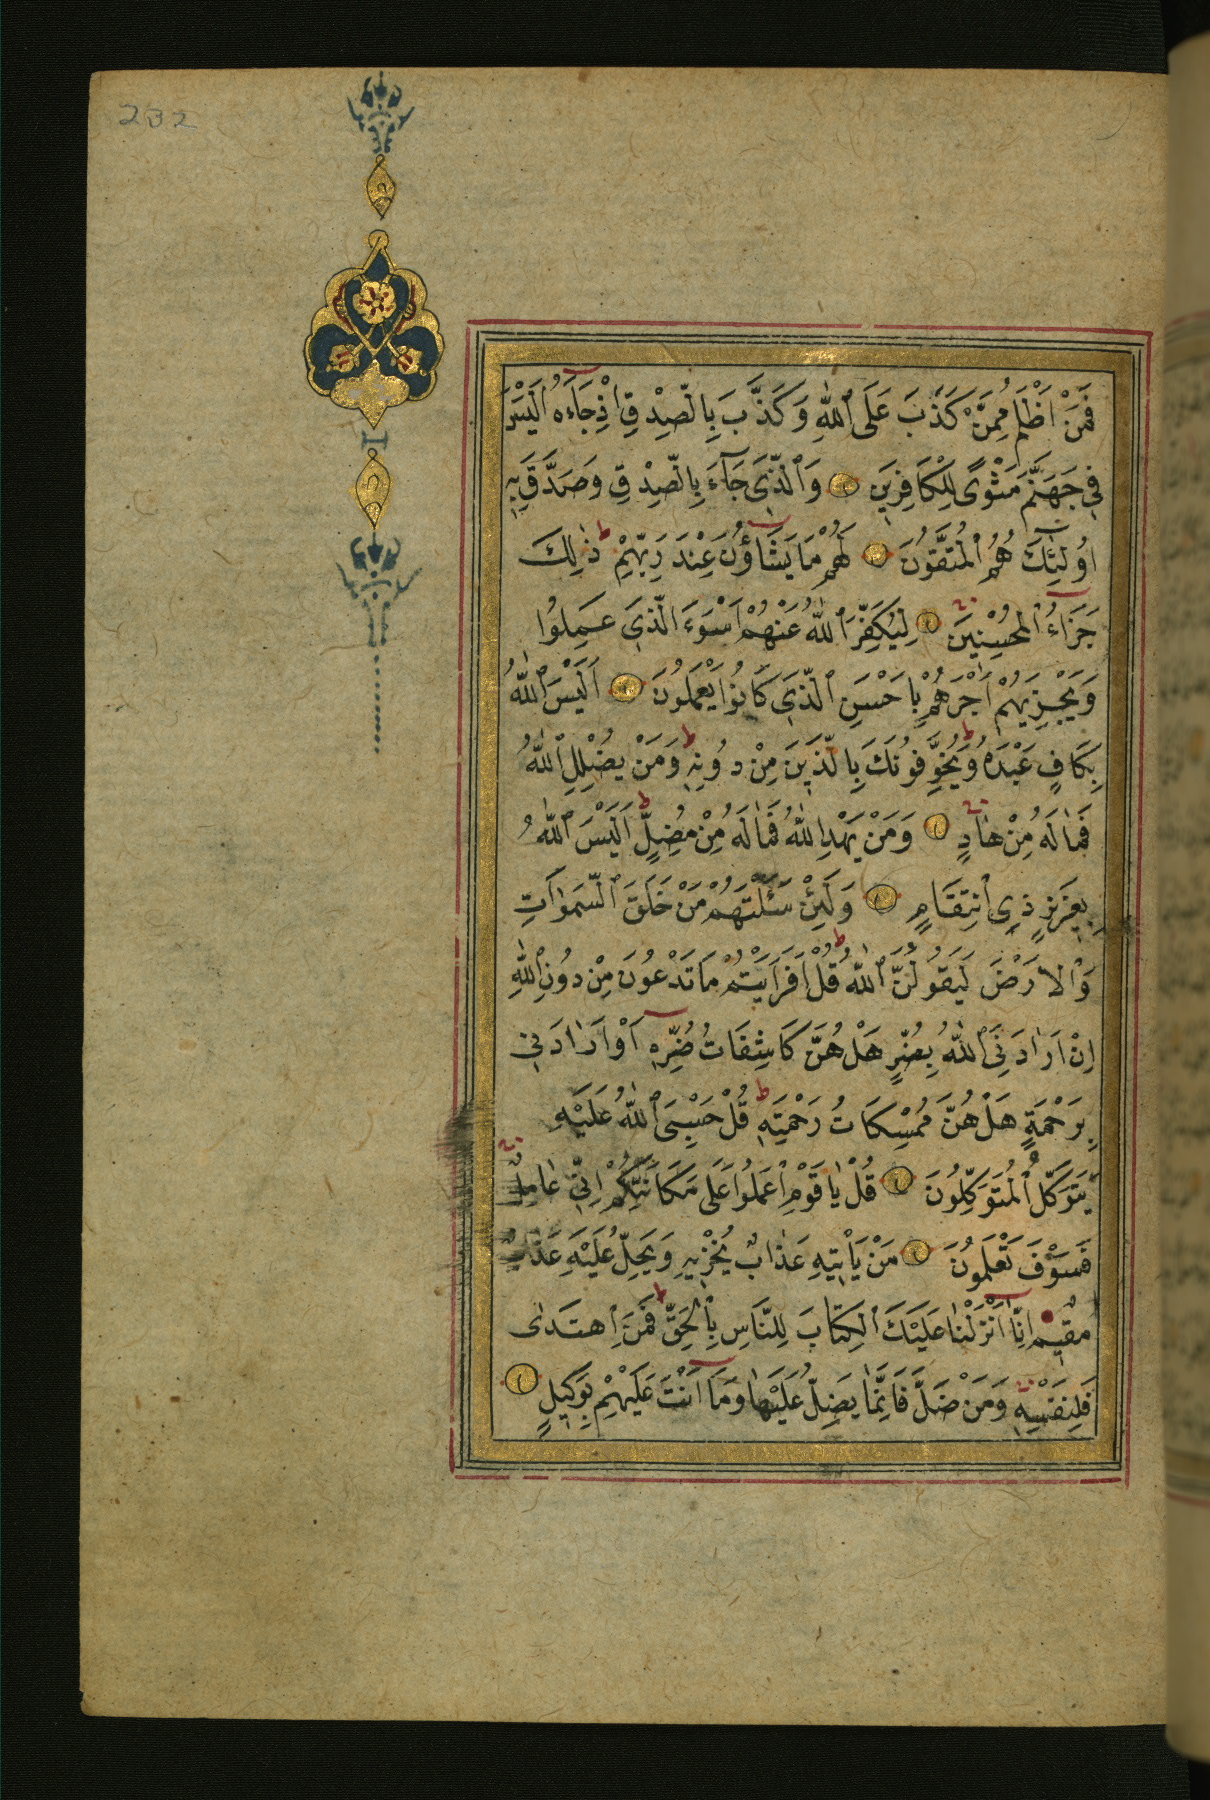 232
فَمَنْ اَظْلَمُ مِمَّنْ كَذَبَ عَلَى ٱللّٰهِ وَكَذَّبَ بِالصِّدْقِ اِذْ جَآءَهُ اَلَيْسَ
فِي جَهَنَّمَ مَثْوًى لِلْكَافِرِينَ وَٱلَّذِي جَآءَ بِالصِّدْقِ وَصَدَّقَ بِهِ
اُولٰٓئِكَ هُمُ ٱلْمُتَّقُونَ لَهُمْ مَا يَشَآؤُنَ عِنْدَ رَبِّهِمْ ط ذٰلِكَ
جَزَآءُ ٱلْمُحْسِنِينَ لِيُكَفِّرَ ٱللّٰهُ عَنْهُمْ اَسْوَءَ الَّذِي عَمِلُوا
وَيَجْزِيَهُمْ اَجْرَهُمْ بِاَحْسَنِ ٱلَّذِي كَانُوا يَعْمَلُونَ اَلَيْسَ ٱللّٰهُ
بِكَافٍ عَبْدَهُ ط وَيُخَوِّفُونَكَ بِالَّذِينَ مِنْ دُونِهِ ط وَمَنْ يُضْلِلِ ٱللّٰهُ
فَمَا لَهُ مِنْ هَادٍ وَمَنْ يَهْدِ ٱللّٰهُ فَمَا لَهُ مِنْ مُضِلٍّ ط اَلَيْسَ ٱللّٰهُ
بِعَزِيزٍ ذِي ٱنْتِقَامٍ وَلَئِنْ سَئَلْتَهُمْ مَنْ خَلَقَ ٱلسَّمٰوَاتِ
وَٱلْاَرْضَ لَيَقُولُنَّ ٱللّٰهُ ط قُلْ اَفَرَاَيْتُمْ مَا تَدْعُونَ مِنْ دُونِ ٱللّٰهِ
اِنْ اَرَادَنِيَ ٱللّٰهُ بِضُرٍّ هَلْ هُنَّ كَاشِفَاتُ ضُرِّهِ اَوْ اَرَادَنِي
بِرَحْمَةٍ هَلْ هُنَّ مُمْسِكَاتُ رَحْمَتِهِ ط قُلْ حَسْبِيَ ٱللّٰهُ عَلَيْهِ
يَتَوَكَّلُ ٱلْمُتَوَكِّلُونَ قُلْ يَا قَوْمِ ٱعْمَلُوا عَلَى مَكَانَتِكُمْ اِنِّي عَامِلٌ
فَسَوْفَ تَعْلَمُونَ مَنْ يَاْتِيهِ عَذَابٌ يُخْزِيهِ وَيَحِلُّ عَلَيْهِ عَذَابٌ
مُقِيمٌ اِنَّآ اَنْزَلْنَا عَلَيْكَ ٱلْكِتَابَ لِلنَّاسِ بِٱلْحَقِّ ط فَمَنِ ٱهْتَدٰى
فَلِنَفْسِهِ وَمَنْ ضَلَّ فَاِنَّمَا يَضِلُّ عَلَيْهَا وَمَآ اَنْتَ عَلَيْهِمْ بِوَكِيلٍ